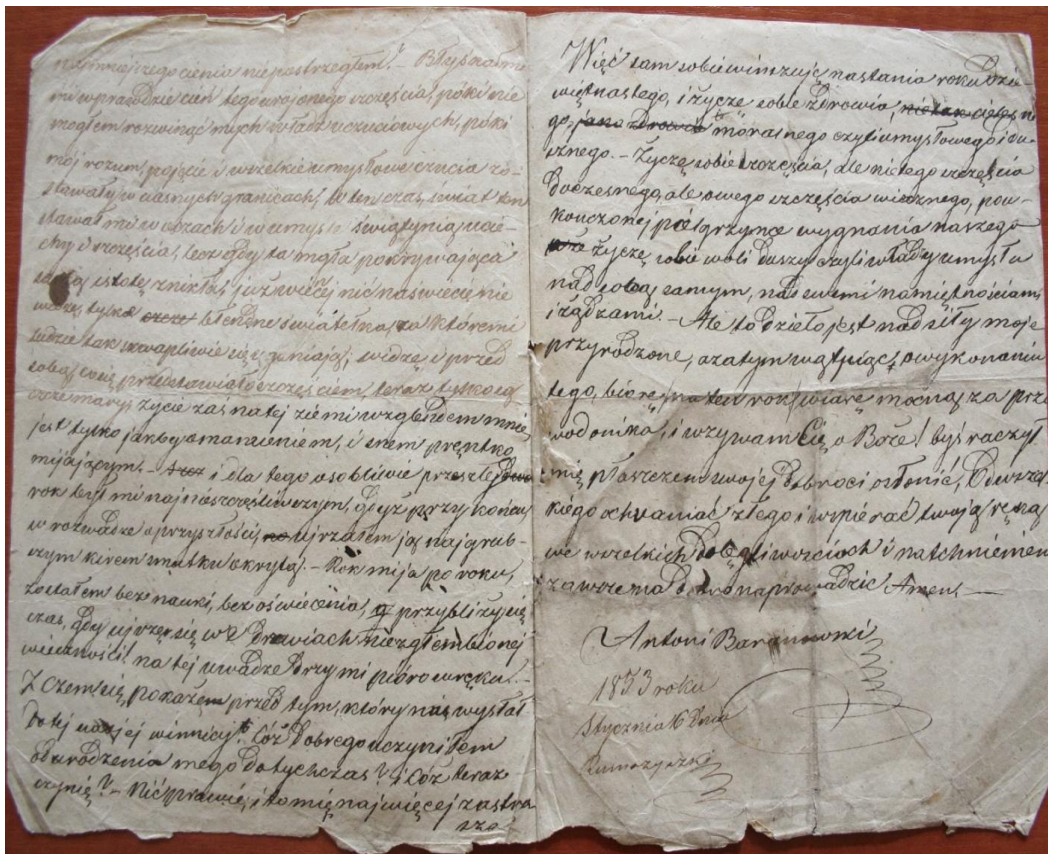 najmniejszego cienia niepostrzegłem! – Błyszczał mi
mi wprawdzie cień tego urojonego szczęścia, póki nie
mogłem rozwinąć mych władz uczuciowych, póki
mój rozum, pojęcie i wszelkie umysłowe czucia zo-
stawały w ciasnych granicach, w ten czas, świat ten
stawał mi w oczach i w umyśle świątynią ucie-
chy i szczęścia, lecz gdy ta mgła pokrywająca
istotę znikła, już więcej nic na świecie nie
widzę, tylko błendne światełka, za któremi
ludzie tak skwapliwie się uganiają; widzę i przed
sobą, co się przedstawiało szczęściem, teraz tylko są
czcze mary, życie zaś na tej ziemi względem mnie,
jest tylko jakby omamieniem, i snem prędko
mijającym. – i dla tego osobliwie przeszły
rok był mi najnieszczęśliwszym, gdyż przy końcu
w rozwadze o przyszłości, ujrzałem ją najgrub-
szym kirem smutku okrytą. – Rok mija po roku,
zostałem bez nauki, bez oświecenia, przybliży się
czas, gdy ujrzę się we drzwiach niezgłembionej
wieczności! na tej uwadze drży mi pióro w ręku. –
Z czem się pokażem przed tym, który nas wysłał
do tej winnicy? Cóż dobrego uczyniłem
od urodzenia mego dotychczas? i cóż teraz
czynię? – Nic prawie, i to mię najwięcej zastra
sza.
Więć sam sobie winszuję nastania roku dzie
więtnastego, i życzę sobie zdrowia, nie tak cielesne
go, jako zdrowia moralnego czyli umysłowego i du-
sznego. – Życzę sobie szczęścia, ale nie tego szczęścia
doczesnego, ale owego szczęścia wiecznego, po u-
kończonej pielgrzymce wygnania naszego
życzę sobie woli duszy czyli władzy umysłu
nad sobą samym, nad swemi namiętnościami
i żądzami. – Ale to dzieło jest nad siły moje
przyrodzone, a zatym wątpiąc o wykonaniu
tego, biorę na ten rok wiarę mocną za prze
wodnika, i wzywam Cię o Boże! byś raczył
mię płaszczem swojej dobroci osłonić, od wszel
kiego ochraniać złego i wspierać twoją ręką
we wszelkich dolegliwościach i natchnieniem
zawsze na dobro naprowadzić. Amen. –
Antoni Baranowski
1853 roku
Stycznia 16 dnia